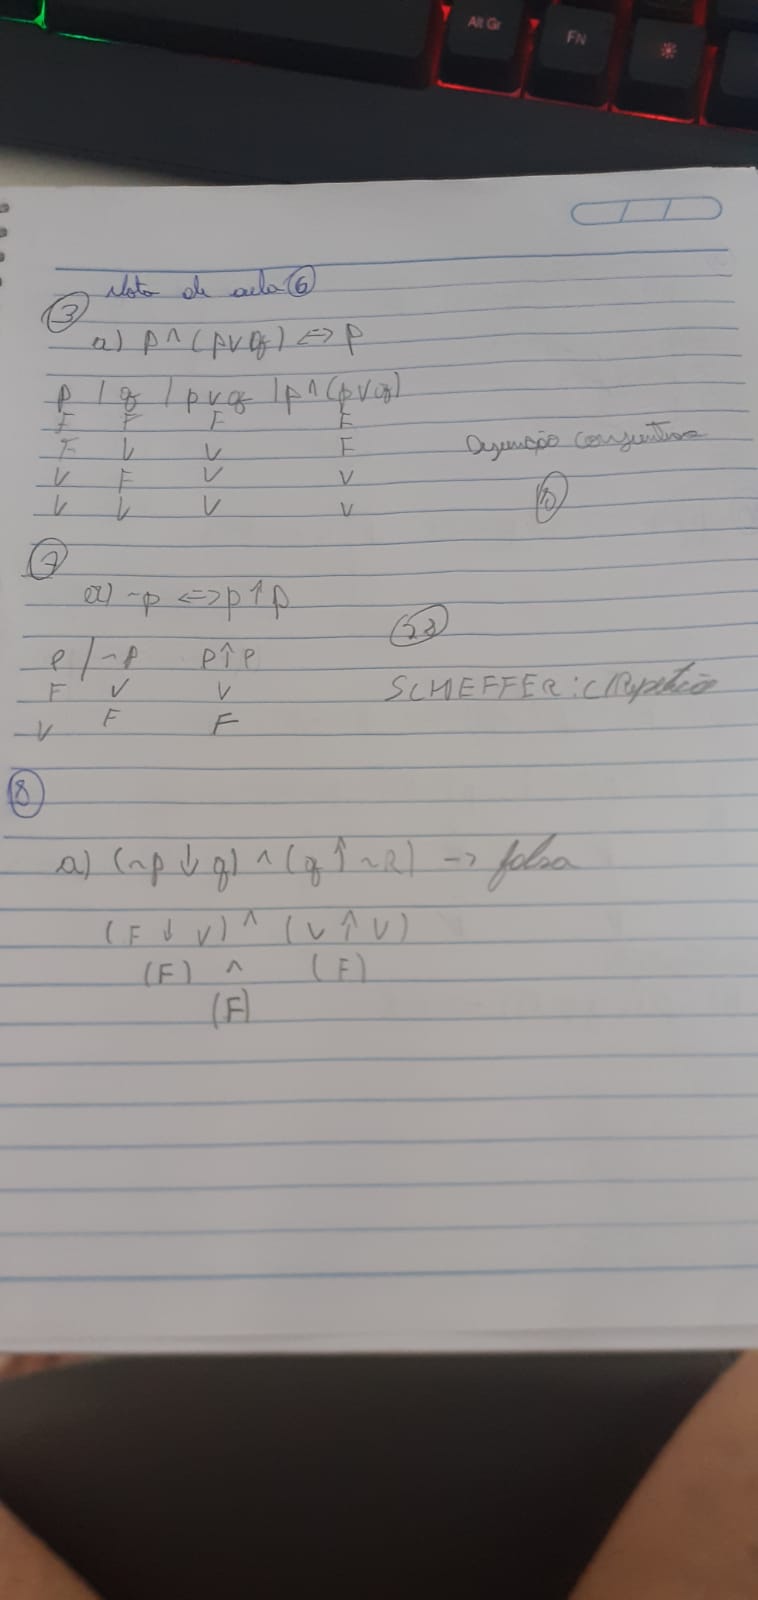 Alt Gr
FN
Nota de aula 6
3
a) p ^ (p v q) <=> p
p / q / p v q / p ^ (p v q)
F F F F
F V V F
V F V V
V V V V
conjuntiva
7
a) ~p <=> p ↑ p
p / ~p p ↑ p
F V V
V F F
SCHEFFER: c/
8
a) (~p ↓ q) ^ (q ↑ ~R) -> falsa
(F ↓ V) ^ (V ↑ V)
(F) ^ (F)
(F)